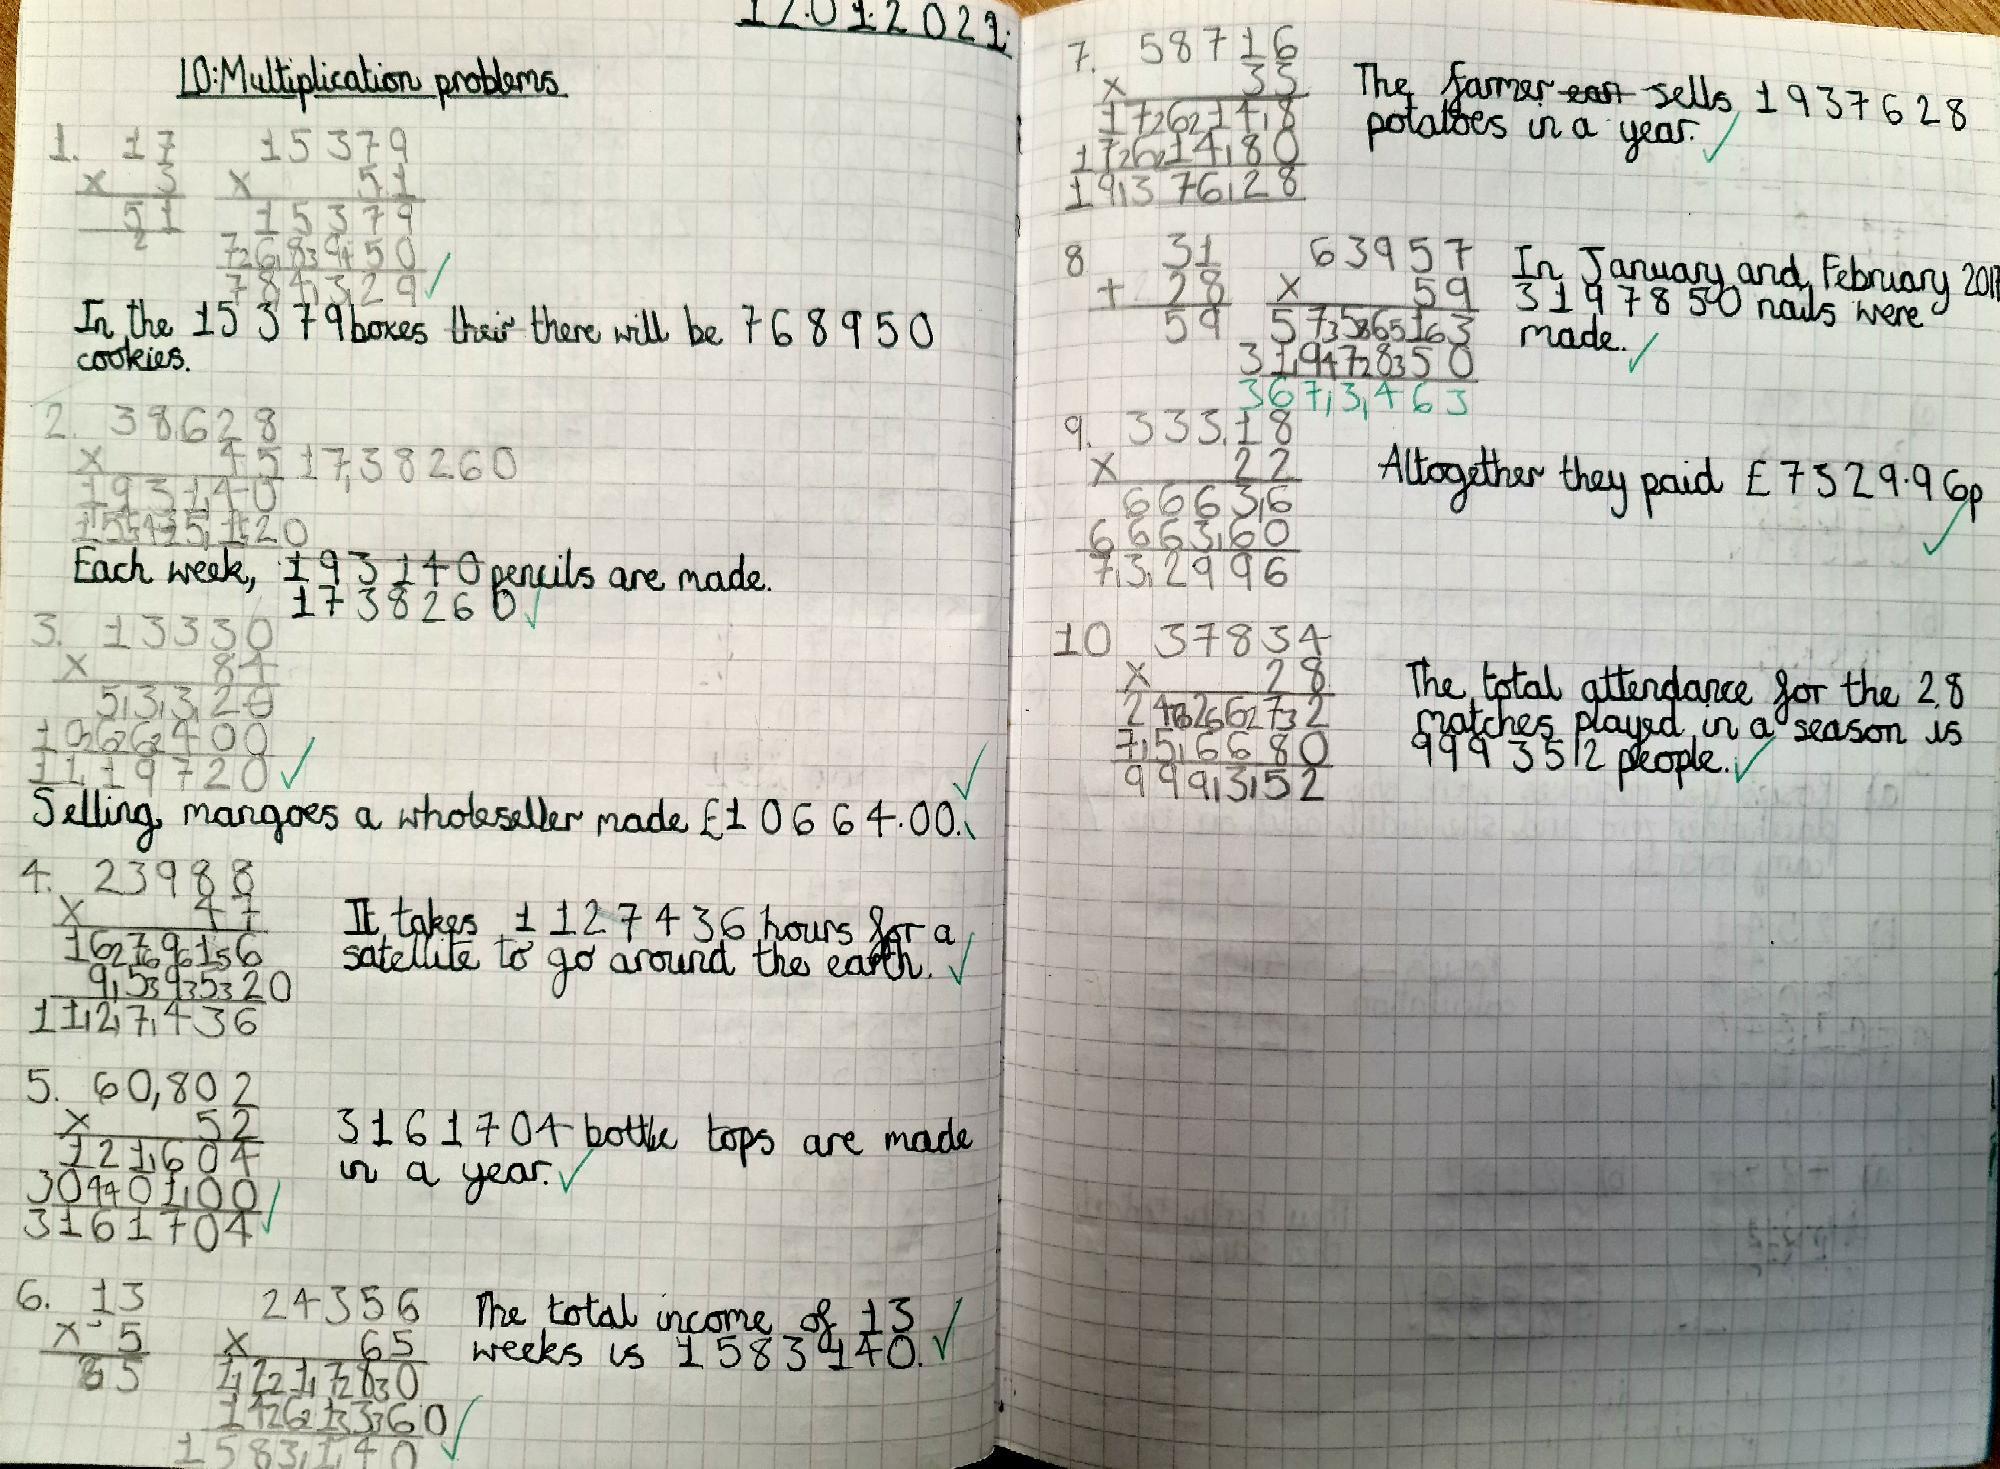 12.01.2021.
LO: Multiplication problems
1. 17 15379
x 3 x 51
51 15379
2 768950
784329
In the 15379 boxes their there will be 768950
cookies.
2. 38628
x 45 1738260
193140
1545120
Each week, 193140 pencils are made.
1738260
3. 13330
x 84
53320
1066400
1119720
Selling mangoes a wholeseller made £10664.00.
4. 23988
x 47
167916
959520
1127436
It takes 1127436 hours for a
satellite to go around the earth.
5. 60,802
x 52
121604
3040100
3161704
3161704 bottle tops are made
in a year.
6. 13 24356
x 5 x 65
65 121780
1461360
1583140
The total income of 13
weeks is 1583140.
7. 58716
x 33
176148
1761480
1937628
The farmer ean sells 1937628
potatoes in a year.
8 31 63957
+ 28 x 59
59 575613
3197850
3673463
In January and February 2017
3197850 nails were
made.
9. 333.18
x 22
66636
666360
732996
Altogether they paid £7329.96p
10 37834
x 28
242672
756680
999352
The total attendance for the 28
matches played in a season is
9993512 people.